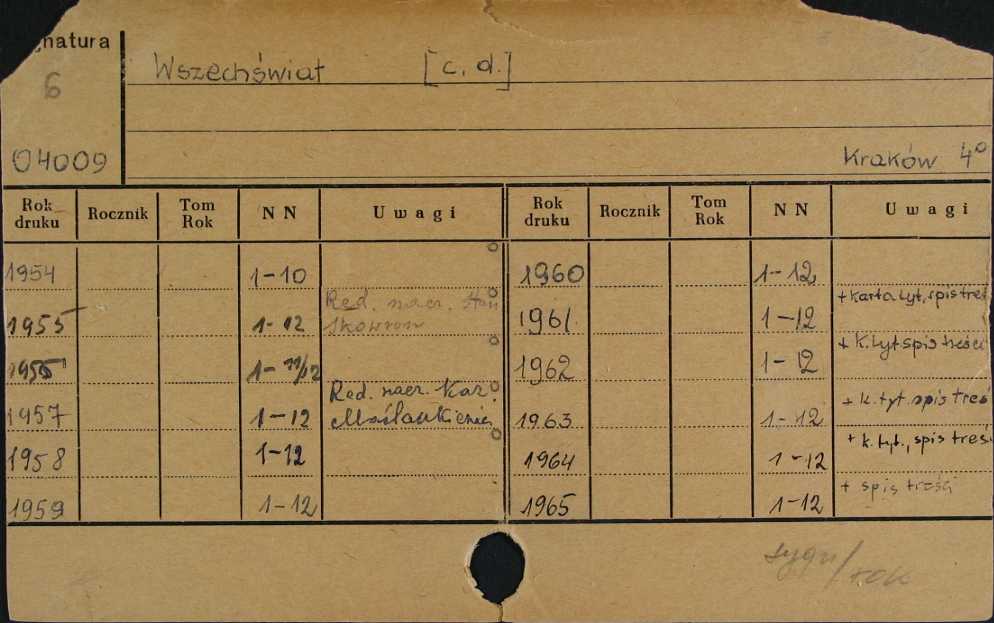 gnatura
6
04009
Wszechświat [c. d.]
Kraków 4°
Rok druku Rocznik Tom Rok NN Uwagi Rok druku Rocznik Tom Rok NN Uwagi
1954 1-10 1960 1-12
Red. nacz. Stan + karta tyt, spis treś
1955 1-12 Skowron 1961 1-12
+ k. tyt spis treści
1-11/12 1962 1-12
Red. nacz. Kaz. + k. tyt. spis treś
1957 1-12 Maślankiewicz 1963 1-12
+ k. tyt., spis treś
1958 1-12 1964 1-12
+ spis treści
1959 1-12 1965 1-12
sygn/rok